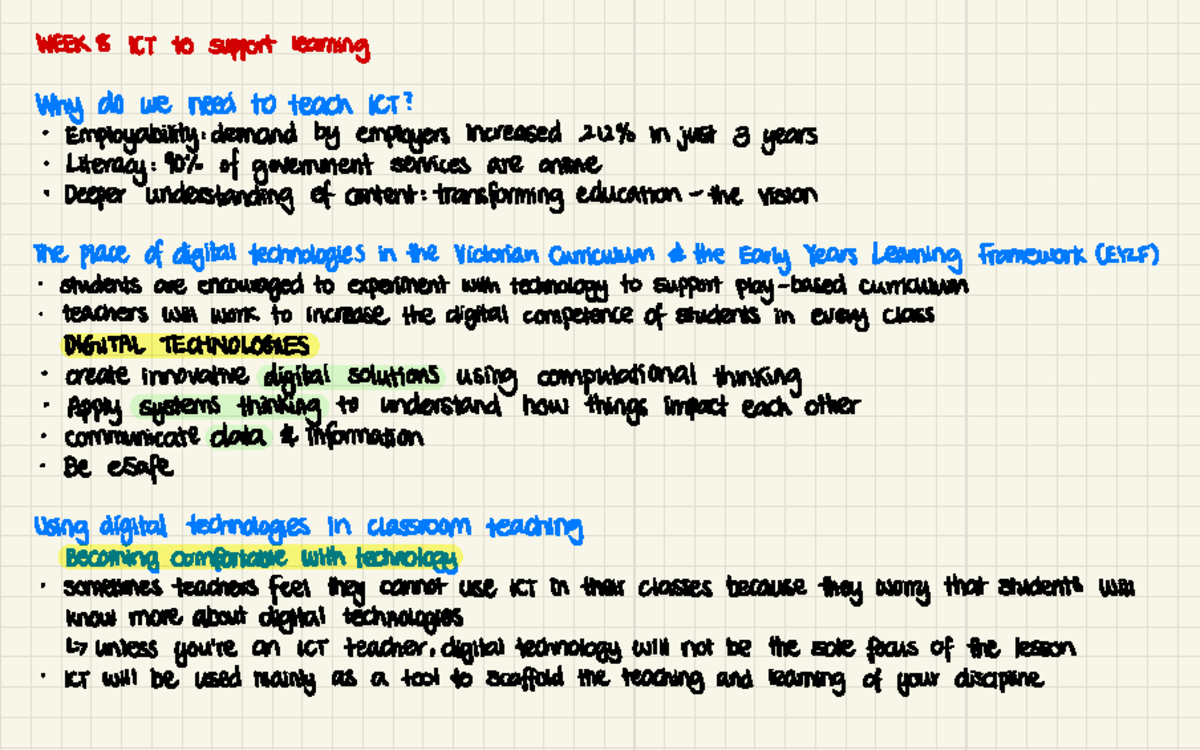 WEEK 8 ICT to support learning
Why do we need to teach ICT?
· Employability: demand by employers increased 212% in just 3 years
· Literacy: 90% of government services are online
· Deeper understanding of content: transforming education - the vision
The place of digital technologies in the Victorian Curriculum & the Early Years Learning Framework (EYLF)
· students are encouraged to experiment with technology to support play-based curriculum
· teachers will work to increase the digital competence of students in every class
DIGITAL TECHNOLOGIES
· create innovative digital solutions using computational thinking
· Apply systems thinking to understand how things impact each other
· communicate data & information
· Be eSafe
Using digital technologies in classroom teaching
Becoming comfortable with technology
· sometimes teachers feel they cannot use ICT in their classes because they worry that students will
know more about digital technologies
↳ unless you're an ICT teacher, digital technology will not be the sole focus of the lesson
· ICT will be used mainly as a tool to scaffold the teaching and learning of your discipline